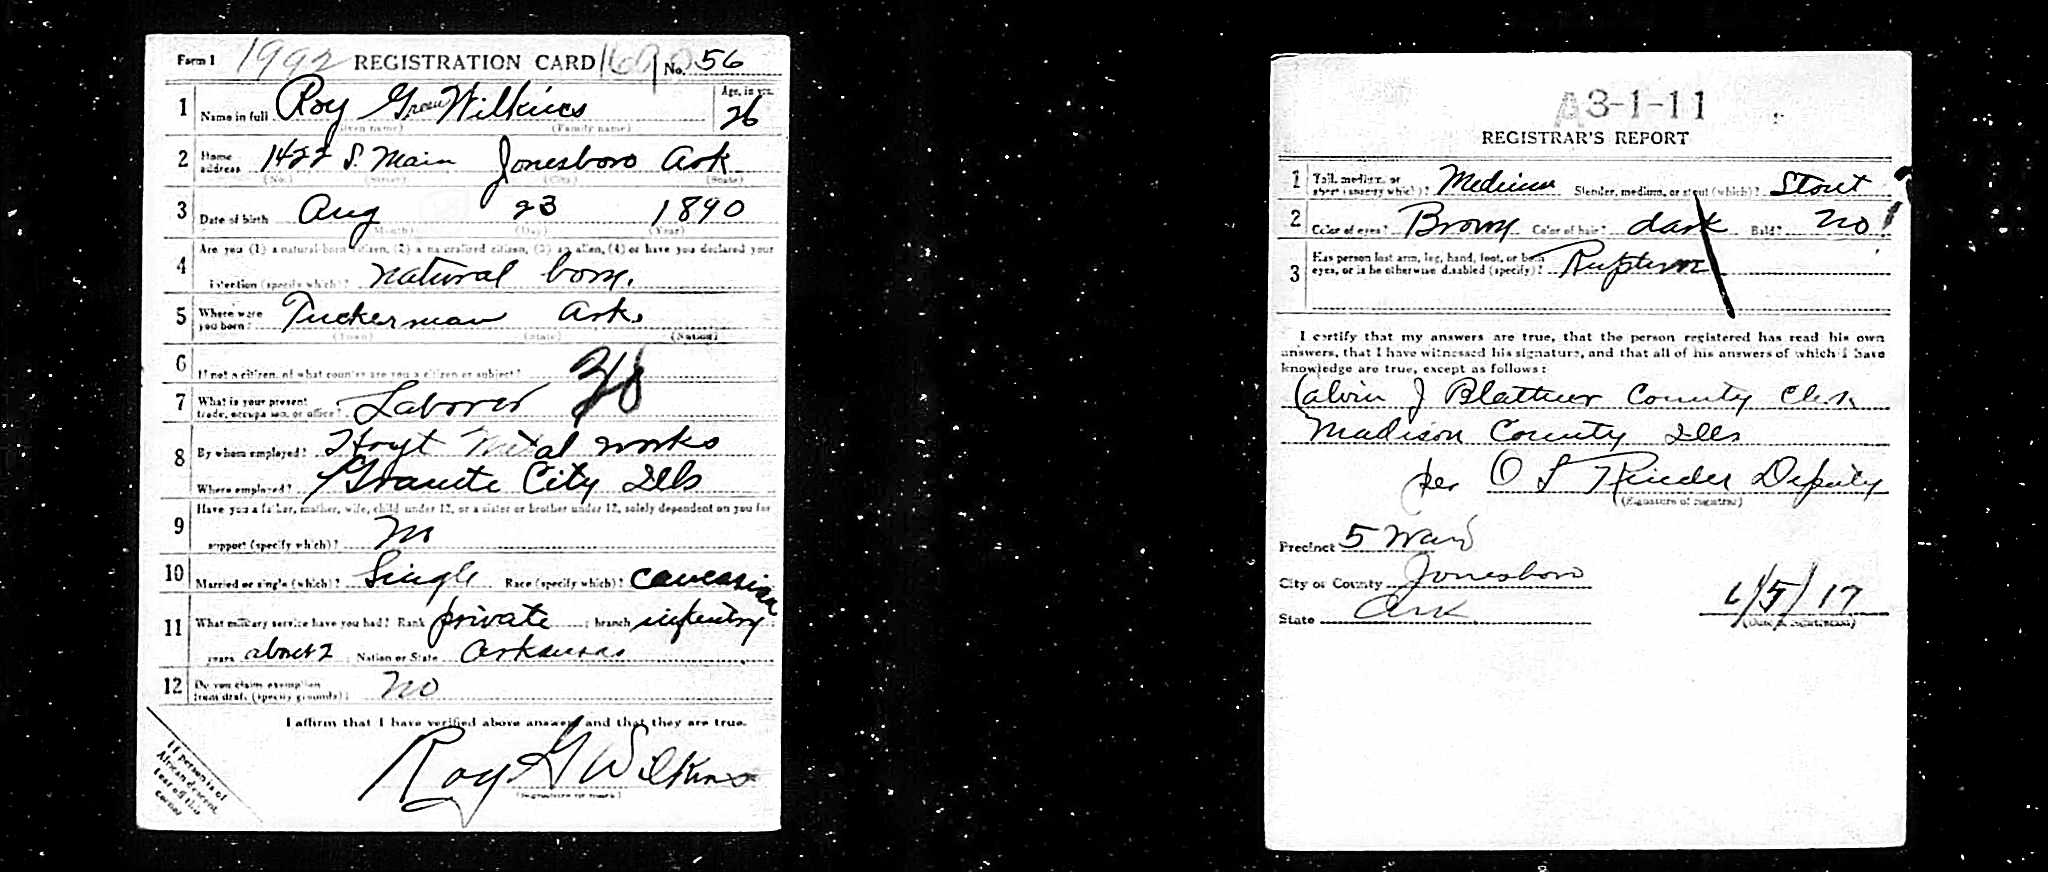 Form 1 1992 REGISTRATION CARD 1690 No. 56
1 Name in full Roy Green Wilkins Age, in yrs. 26
(Given name) (Family name)
2 Home address 1422 S. Main Jonesboro Ark
(No.) (Street) (City) (State)
3 Date of birth Aug 23 1890
(Month) (Day) (Year)
Are you (1) a natural-born citizen, (2) a naturalized citizen, (3) an alien, (4) or have you declared your
4 intention (specify which)? natural born.
5 Where were you born? Tuckerman Ark.
(Town) (State) (Nation)
6 If not a citizen, of what country are you a citizen or subject?
7 What is your present trade, occupation, or office? Laborer
8 By whom employed? Hoyt Metal works
Where employed? Granite City Ills
Have you a father, mother, wife, child under 12, or a sister or brother under 12, solely dependent on you for
9 support (specify which)? No
10 Married or single (which)? Single Race (specify which)? Caucasian
11 What military service have you had? Rank private ; branch infentry
years about 2 ; Nation or State Arkansas
12 Do you claim exemption from draft (specify grounds)? No
I affirm that I have verified above answers and that they are true.
Roy G Wilkins
(Signature or mark)
If person is of
African descent,
tear off this
corner
A3-1-11
REGISTRAR'S REPORT
1 Tall, medium, or short (specify which)? Medium Slender, medium, or stout (which)? Stout
2 Color of eyes? Brown Color of hair? dark Bald? No
3 Has person lost arm, leg, hand, foot, or both eyes, or is he otherwise disabled (specify)? Rupture
I certify that my answers are true, that the person registered has read his own
answers, that I have witnessed his signature, and that all of his answers of which I have
knowledge are true, except as follows:
Calvin J Blattner County Clerk
Madison County Ills
per O L Rinder Deputy
(Signature of registrar)
Precinct 5 Ward
City or County Jonesboro
State Ark
6/5/17
(Date of registration)